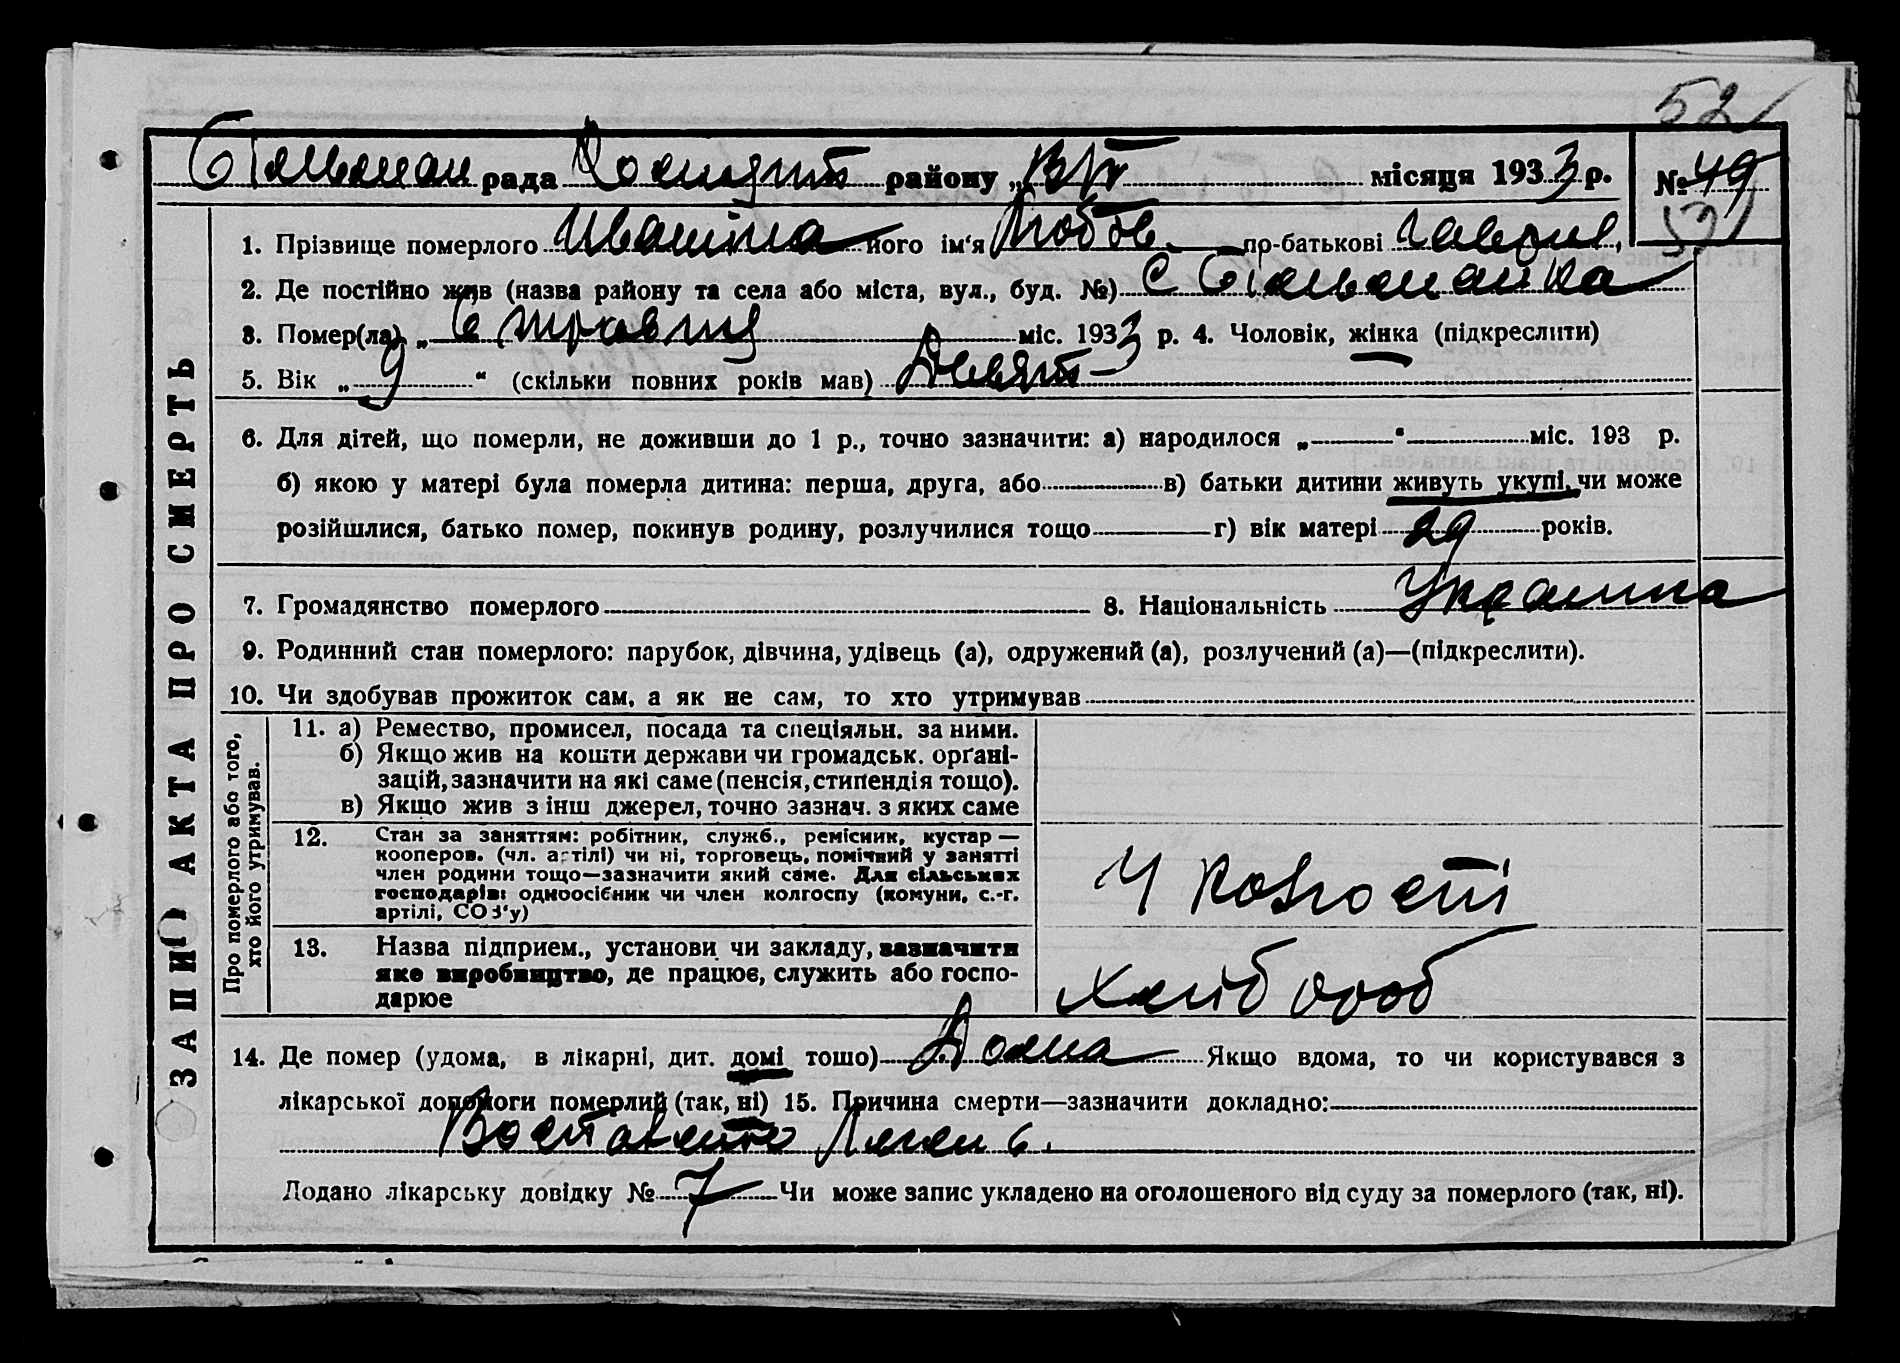 52
рада району „ місяця 1933 р. № 49
51
1. Прізвище померлого Іваніна його ім'я Любов по-батькові Гаврил,
2. Де постійно жив (назва району та села або міста, вул., буд. №) с
3. Помер(ла) „ 6 травня міс. 1933 р. 4. Чоловік, жінка (підкреслити)
5. Вік „ 9 “ (скільки повних років мав) Девять
6. Для дітей, що померли, не доживши до 1 р., точно зазначити: а) народилося „ “ міс. 193 р.
б) якою у матері була померла дитина: перша, друга, або в) батьки дитини живуть укупі, чи може
розійшлися, батько помер, покинув родину, розлучилися тощо г) вік матері 29 років.
7. Громадянство померлого 8. Національність Украинка
9. Родинний стан померлого: парубок, дівчина, удівець (а), одружений (а), розлучений (а)—(підкреслити).
10. Чи здобував прожиток сам, а як не сам, то хто утримував
ЗАПИС АКТА ПРО СМЕРТЬ
Про померлого або того,
хто його утримував.
11. а) Ремество, промисел, посада та спеціяльн. за ними.
б) Якщо жив на кошти держави чи громадськ. орґані-
зацій, зазначити на які саме (пенсія, стипендія тощо).
в) Якщо жив з інш джерел, точно зазнач. з яких саме
12. Стан за заняттям: робітник, служб., ремісник, кустар —
кооперов. (чл. артілі) чи ні, торговець, помічний у занятті
член родини тощо—зазначити який саме. Для сільських
господарів: одноосібник чи член колгоспу (комуни, с.-г.
артілі, СОЗ'у)
Ч
13. Назва підприєм., установи чи закладу, зазначити
яке виробництво, де працює, служить або госпо-
дарює
Хлібороб
14. Де помер (удома, в лікарні, дит. домі тошо) Дома Якщо вдома, то чи користувався з
лікарської допомоги померлий (так, ні) 15. Причина смерти—зазначити докладно:
Легень.
Додано лікарську довідку № 7 Чи може запис укладено на оголошеного від суду за померлого (так, ні).